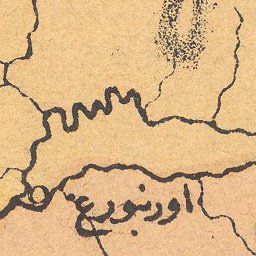 اورنبورغ